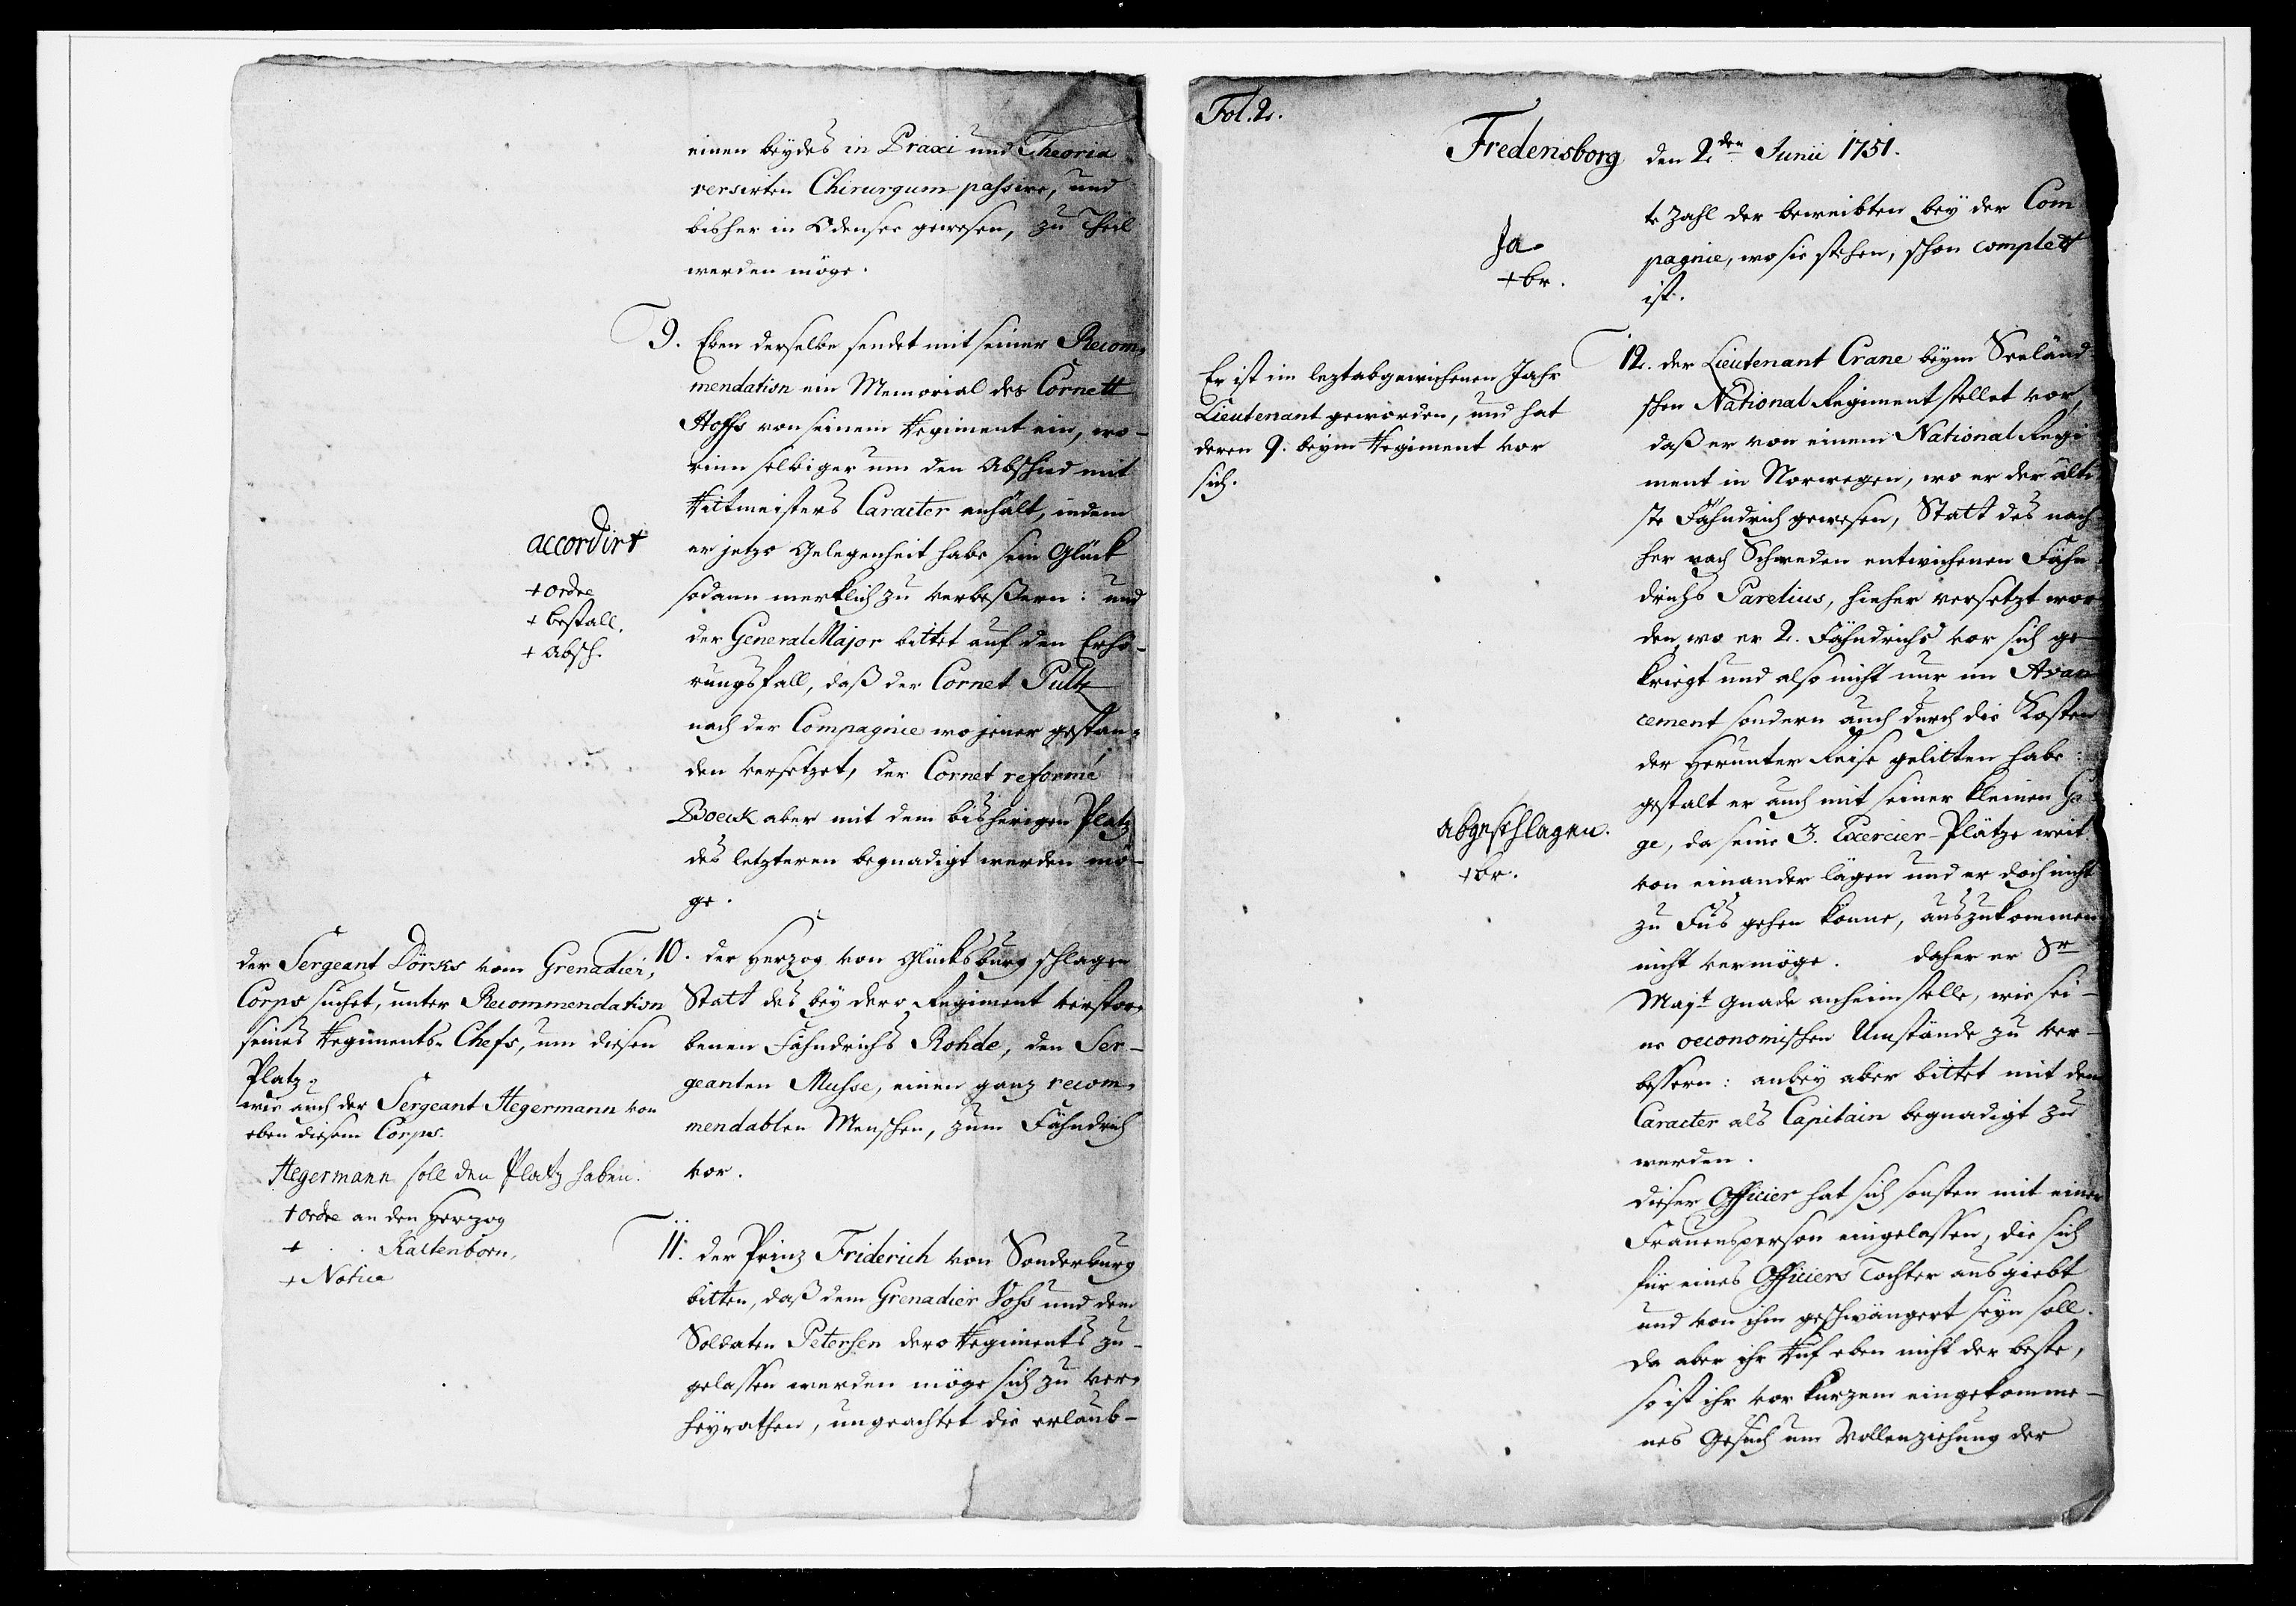 einen beydes in Praxi und Theoria
versirten Chirurgum passire, und
bisher in Odensee gewesen, zu Theil
werden möge.
9. Eben derselbe sendet mit seiner Recom-
mendation ein Memorial des Cornett
Hoffs von seinem Regiment ein, wo-
rinn selbiger um den Abschied mit
Rittmeisters Caracter anhält, indem
er jetzo Gelegenheit habe sein Glück
sodann merklich zu verbeßern: und
der GeneralMajor bittet auf den Erhö-
rungsfall, daß der Cornet Pultz
nach der Compagnie wo jener gestan-
den versetzet, der Cornet reformé
Boeck aber mit dem bisherigen Platz
des letzteren begnadigt werden mö-
ge.
accordirt
+ ordre
+ bestall.
+ Absch.
10. der Herzog von Glücksburg schlagen
Statt des bey dero Regiment verstor-
benen Fähndrichs Rohde, den Ser-
geanten Musse, einen ganz recom-
mendablen Menschen, zum Fähndrich
vor.
der Sergeant Dörks vom Grenadier-
Corps suchet, unter Recommendation
seines Regiments-Chefs, um diesen
Platz,
wie auch der Sergeant Hegermann von
eben diesem Corps.
Hegermann soll den Platz haben.
+ ordre an den Herzog
+ . . Kaltenborn,
+ Notice
11. der Prinz Friderich von Sonderburg
bitten, daß dem Grenadier Voss und dem
Soldaten Petersen dero Regiments zu-
gelassen werden möge sich zu ver-
heyrathen, ungeachtet die erlaub-
Fol. 2.
Fredensborg den 2den Junii 1751.
te Zahl der beweibten bey der Com
pagnie, wo sie stehen, schon complett
ist.
Ja
+ br.
12. der Lieutenant Crane beym Seeländ-
schen National Regiment stellet vor,
daß er von einem National Regi
ment in Norwegen, wo er der älte
ste Fähndrich gewesen, Statt des nach
her nach Schweden entwichenen Fähn
drichs Parelius, hieher versetzt wor
den, wo er 2. Fähndrichs vor sich ge
kriegt und also nicht nur im Avan
cement sondern auch durch die Kosten
der Herunter Reise gelitten habe:
gestalt er auch mit seiner kleinen Ga
ge, da seine 3. Exercier-Plätze weit
von einander lägen und er doch nicht
zu Fus gehen könne, auszukommen
nicht vermöge. daher er Sr
Majt Gnade anheim stelle, wie sei-
ne oeconomischen Umstände zu ver-
bessern: anbey aber bittet mit dem
Caracter als Capitain begnadigt zu
werden.
dieser Officier hat sich sonsten mit einer
Frauensperson eingelassen, die sich
für eines Officiers Tochter ausgiebt
und von ihm geschwängert seyn soll.
da aber ihr Ruf eben nicht der beste,
so ist ihr vor kurzem eingekomme-
nes Gesuch um Vollenziehung der
Er ist im leztabgewichenen Jahr
Lieutenant geworden, und hat
deren 9. beym Regiment vor
sich.
abgeschlagen.
+ br.